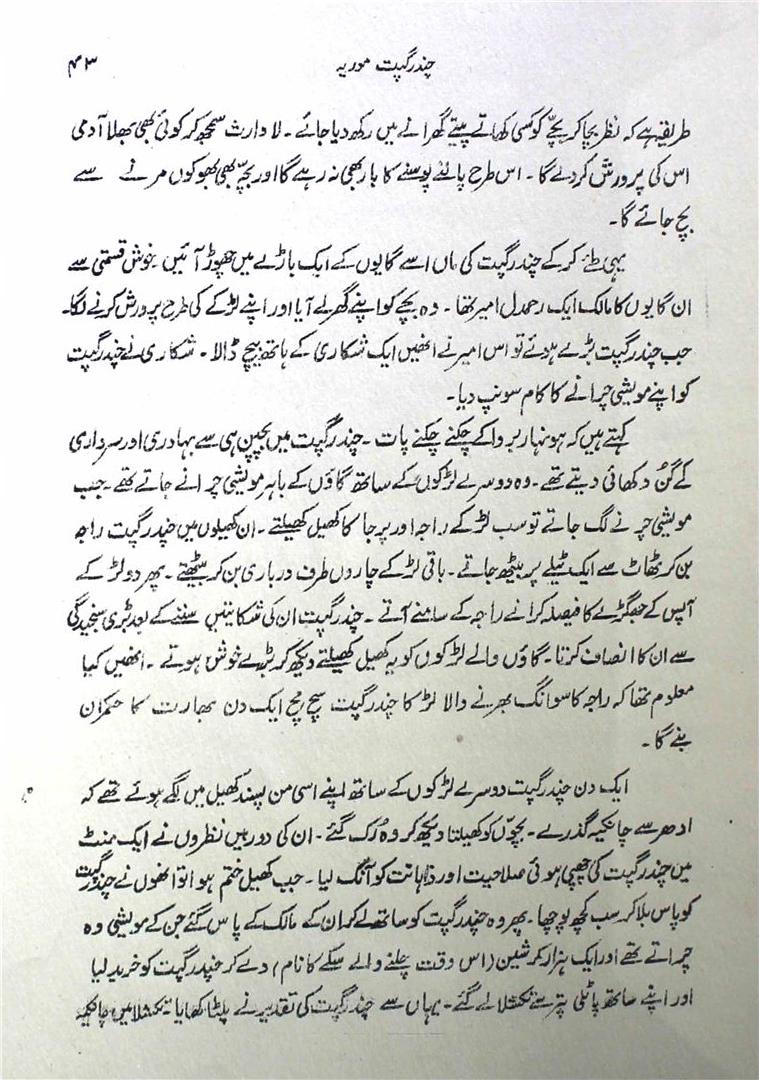 چندرگپت موریہ
۴۳
طریقہ ہے کہ نظر بچا کر بچّے کو کسی کھاتے پیتے گھرانے میں رکھ دیا جائے ۔ لا وارث سمجھ کر کوئی بھی بھلا آدمی
اس کی پرورش کر دے گا ۔ اس طرح پالنے پوسنے کا بار بھی نہ رہے گا اور بچّہ بھی بھوکوں مرنے سے
بچ جائے گا ۔
یہی طئے کر کے چندرگپت کی ماں اسے گایوں کے ایک باڑے میں چھوڑ آئیں ۔ خوش قسمتی سے
ان گایوں کا مالک ایک رحمدل امیر تھا ۔ وہ بچے کو اپنے گھر لے آیا اور اپنے لڑکے کی طرح پرورش کرنے لگا ۔
جب چندرگپت بڑے ہوئے تو اس امیر نے انھیں ایک شکاری کے ہاتھ بیچ ڈالا ۔ شکاری نے چندرگپت
کو اپنے مویشی چرانے کا کام سونپ دیا ۔
کہتے ہیں کہ ہونہار بروا کے چکنے چکنے پات ۔ چندرگپت میں بچپن ہی سے بہادری اور سرداری
کے گُن دکھائی دیتے تھے ۔ وہ دوسرے لڑکوں کے ساتھ گاؤں کے باہر مویشی چرانے جاتے تھے ۔ جب
مویشی چرنے لگ جاتے تو سب لڑکے راجہ اور پرجا کا کھیل کھیلتے ۔ ان کھیلوں میں چندرگپت راجہ
بن کر ٹھاٹ سے ایک ٹیلے پر بیٹھ جاتے ۔ باقی لڑکے چاروں طرف درباری بن کر بیٹھتے ۔ پھر دو لڑکے
آپس کے جھگڑے کا فیصلہ کرانے راجہ کے سامنے آتے ۔ چندرگپت ان کی شکایتیں سننے کے بعد بڑی سنجیدگی
سے ان کا انصاف کرتا ۔ گاؤں والے لڑکوں کو یہ کھیل کھیلتے دیکھ کر بڑے خوش ہوتے ۔ انھیں کیا
معلوم تھا کہ راجہ کا سوانگ بھرنے والا لڑکا چندرگپت سچ مچ ایک دن بھارت کا حکمران
بنے گا ۔
ایک دن چندرگپت دوسرے لڑکوں کے ساتھ اپنے اسی من پسند کھیل میں لگے ہوئے تھے کہ
ادھر سے چانکیہ گذرے ۔ بچّوں کو کھیلتا دیکھ کر وہ رُک گئے ۔ ان کی دور بیں نظروں نے ایک منٹ
میں چندرگپت کی چھپی ہوئی صلاحیت اور ذہانت کو آنک لیا ۔ جب کھیل ختم ہوا تو انھوں نے چندرگپت
کو پاس بلا کر سب کچھ پوچھا ۔ پھر وہ چندرگپت کو ساتھ لے کر ان کے مالک کے پاس گئے جن کے مویشی وہ
چراتے تھے اور ایک ہزار کرشین (اس وقت چلنے والے سکّے کا نام) دے کر چندرگپت کو خرید لیا
اور اپنے ساتھ پاٹلی پتر سے تکشلا لے گئے ۔ یہاں سے چندرگپت کی تقدیر نے پلٹا کھایا ۔ تکشلا میں چانکیہ